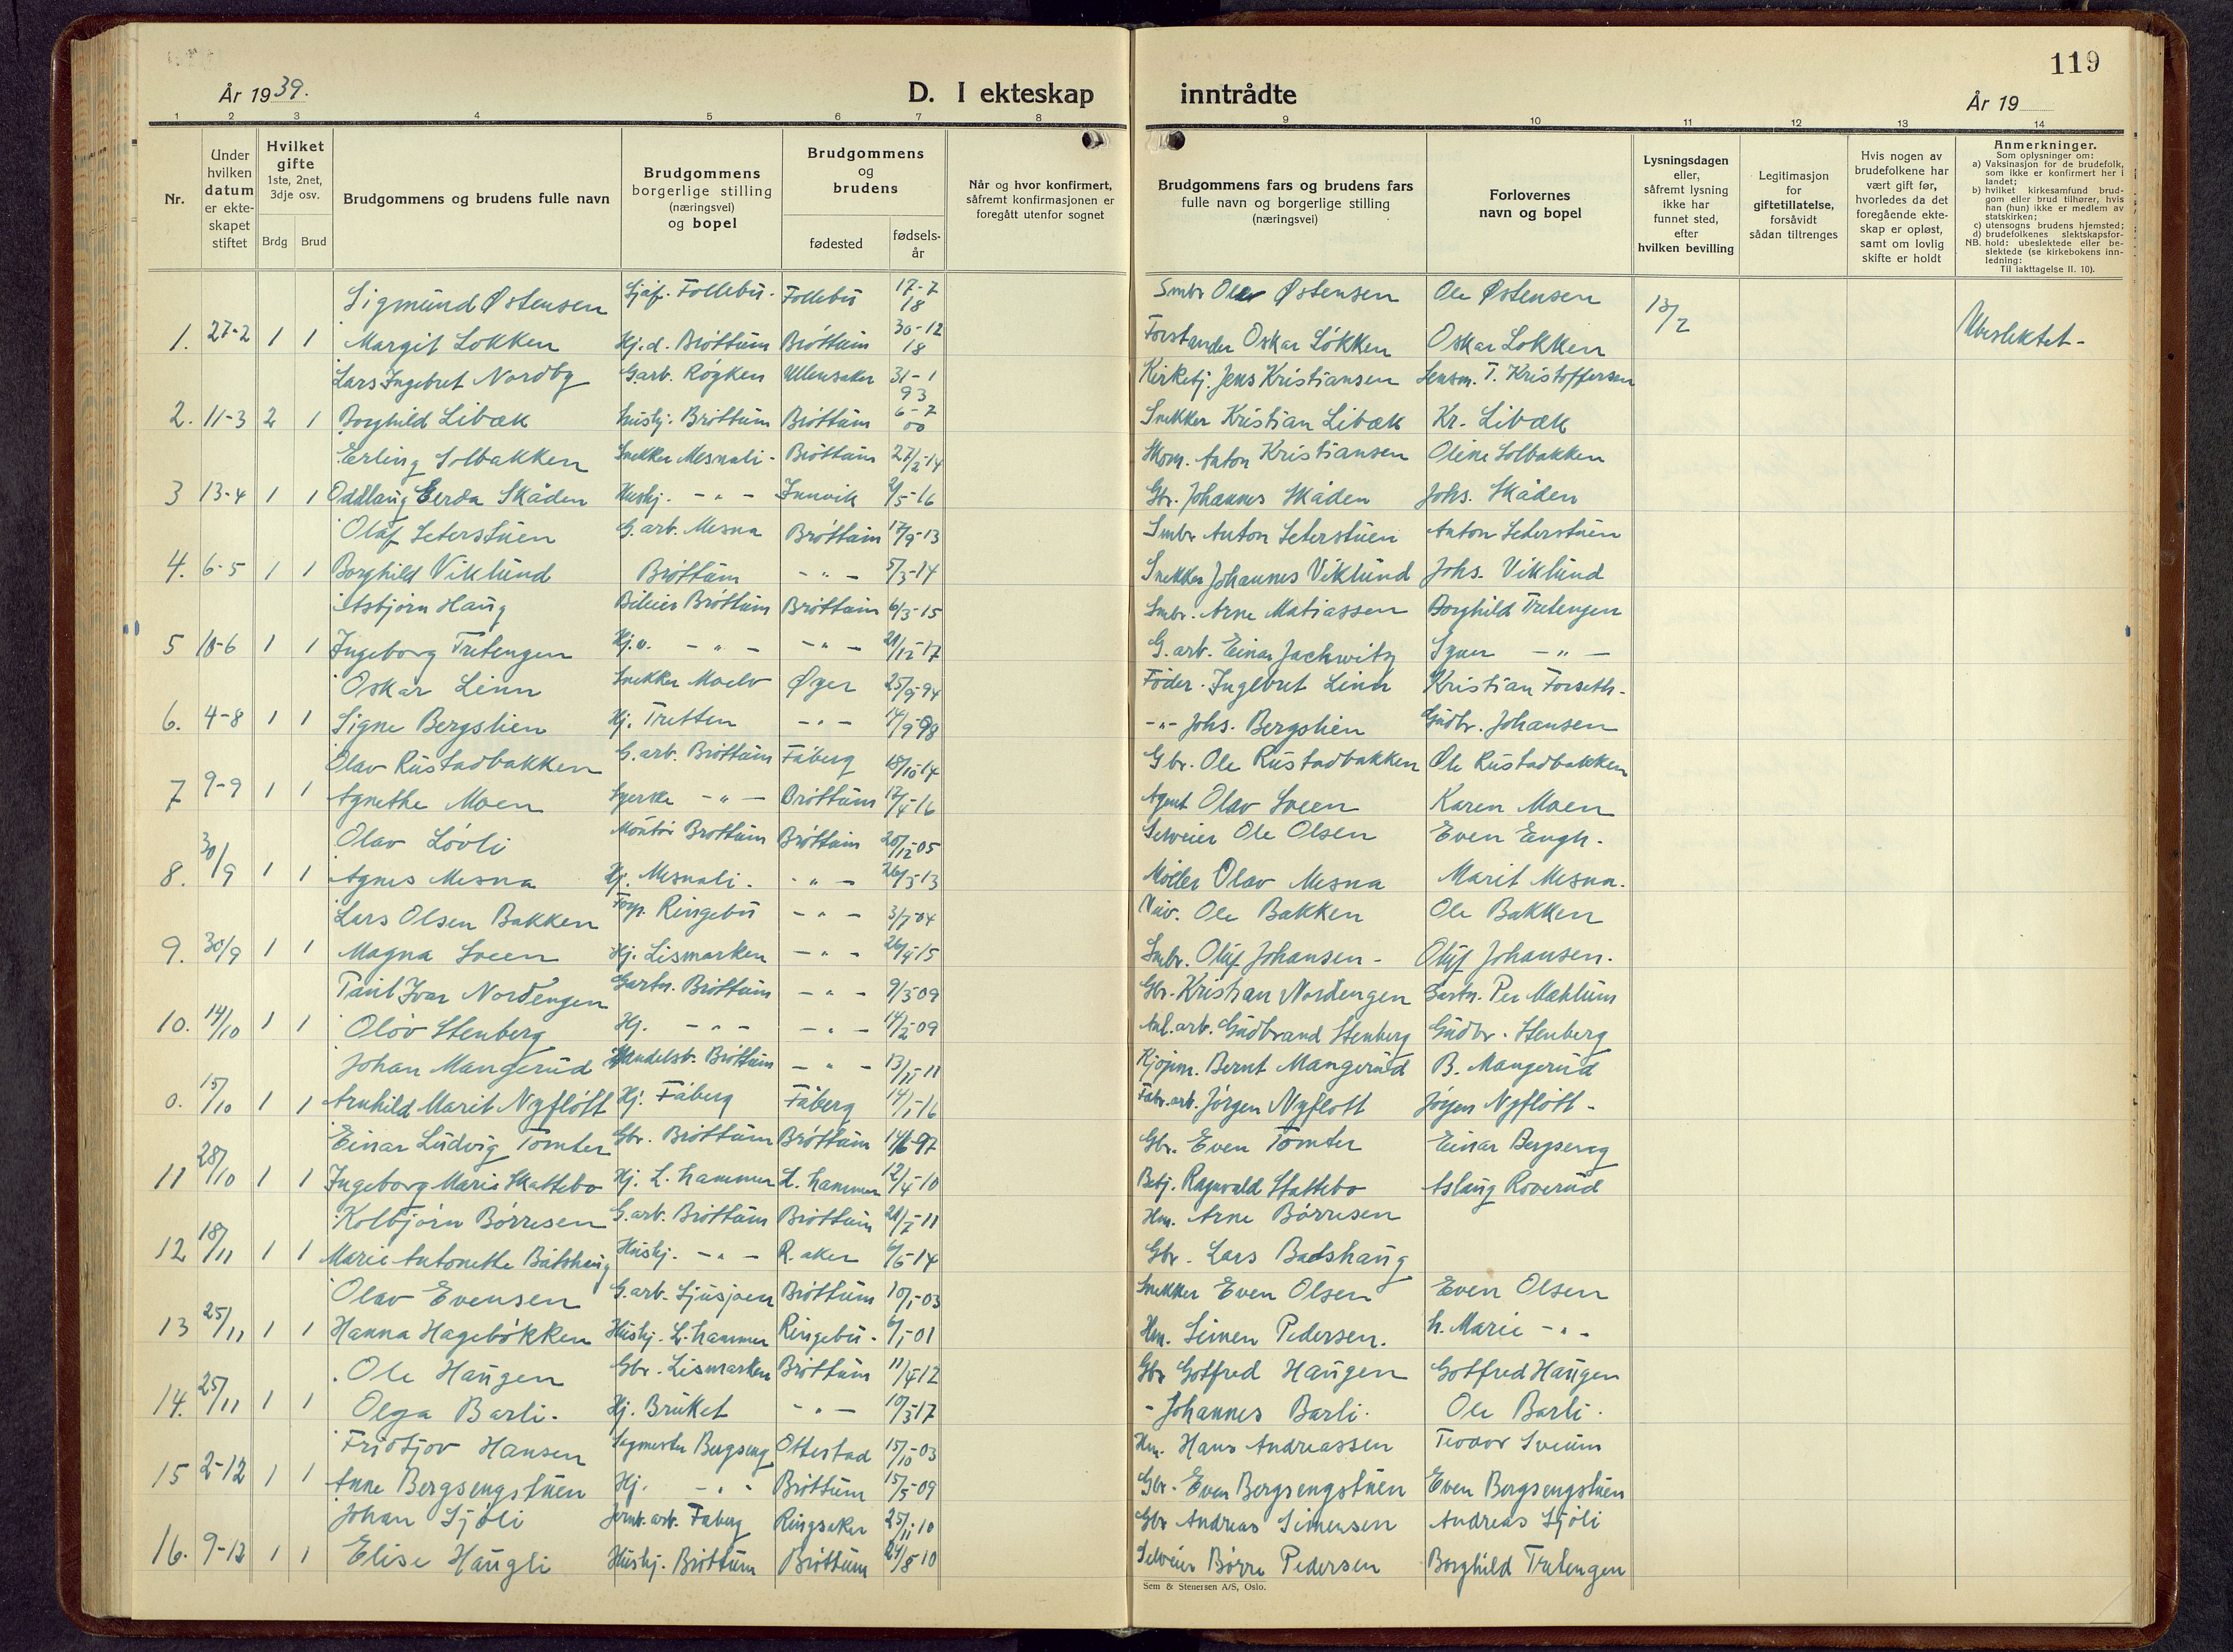 119
År 1939.
D. I ekteskap inntrådte
År 19
1 2 3 4 5 6 7 8 9 10 11 12 13 14
Nr.
Under hvilken datum er ekteskapet stiftet
Hvilket gifte 1ste, 2net, 3dje osv.
Brdg Brud
Brudgommens og brudens fulle navn
Brudgommens borgerlige stilling (næringsvei) og bopel
Brudgommens og brudens
fødested
fødselsår
Når og hvor konfirmert, såfremt konfirmasjonen er foregått utenfor sognet
Brudgommens fars og brudens fars fulle navn og borgerlige stilling (næringsvei)
Forlovernes navn og bopel
Lysningsdagen eller, såfremt lysning ikke har funnet sted, efter hvilken bevilling
Legitimasjon for giftetillatelse, forsåvidt sådan tiltrenges
Hvis nogen av brudefolkene har vært gift før, hvorledes da det foregående ekteskap er opløst, samt om lovlig skifte er holdt
Anmerkninger.
Som oplysninger om:
a) Vaksinasjon for de brudefolk, som ikke er konfirmert her i landet;
b) hvilket kirkesamfund brudgom eller brud tilhører, hvis han (hun) ikke er medlem av statskirken;
c) utensogns brudens hjemsted;
d) brudefolkenes slektskapsforhold: ubeslektede eller beslektede (se kirkebokens innledning:
NB.
Til iakttagelse II. 10).
Sigmund Østensen Sjåf. Follebu. Follebu 17-7 18 Smbr Olav Østensen Ole Østensen 13/2
1. 27-2 1 1 Margit Løkken Hj.d. Brøttum Brøttum 30-12 18 Forstander Oskar Løkken Oskar Løkken Ubeslektet-
Lars Ingebret Nordby G.arb. Røyken Ullensaker 31-1 93 Kirketj. Jens Kristiansen Lensm. T. Kristoffersen
2. 11-3 2 1 Borghild Libæk Hushj. Brøttum Brøttum 6-7 00 Snekker Kristian Libæk Kr. Libæk
Erling Solbakken Snekker Mesnali- Brøttum 27/2-14 Skom. Anton Kristiansen Oline Solbakken
3 13-4 1 1 Oddlaug Gerda Skåden Hushj. - " - Innvik 5-16 Gbr. Johannes Skåden Johs. Skåden
Olaf Seterstuen G.arb. Mesna Brøttum 17/9-13 Smbr Anton Seterstuen Anton Seterstuen
4. 6-5 1 1 Borghild Viklund Brøttum - " - 5/3-14 Snekker Johannes Viklund Johs. Viklund
Asbjørn Haug Bileier Brøttum Brøttum 6/3-15 Smbr. Arne Matiassen Borghild Tretengen
5 10-6 1 1 Ingeborg Tretengen Hj.v. - " - - " - 21/12-17 G.arb. Einar Jackwitz - " -
Oskar Linn Snekker Moelv Øyer 25/9-94 Føder. Ingebret Linn Kristian Forseth-
6. 4-8 1 1 Signe Bergslien Hj. Tretten - " - 14/9-98 - " - Johs. Bergslien Gudbr. Johansen
Olav Rustadbakken G.arb. Brøttum Fåberg 18/10-14 Gbr. Ole Rustadbakken Ole Rustadbakken
7 9-9 1 1 Agnethe Moen Syerske - " - Brøttum 12/4-16 Agent Olav Sveen Karen Moen
Olav Løvli Montør Brøttum Brøttum 20/12-05 Selveier Ole Olsen Even Engh.
8. 30/9 1 1 Agnes Mesna Hj. Mesnali. - " - 26/5-13 Møller Olav Mesna Marit Mesna.
Lars Olsen Bakken Ringebu - " - 3/7-04 Ole Bakken Ole Bakken
9. 30/9 1 1 Magna Sveen Hj. Lismarken - " - 26/4-15 Smbr. Oluf Johansen- Oluf Johansen.
Paul Ivar Nordengen Gartn. Brøttum - " - 9/3-09 Gbr. Kristian Nordengen Gartn. Per Mæhlum
10. 14/10 1 1 Olöv Stenberg Hj. - " - - " - 14/2-09 Anl.arb. Gudbrand Stenberg Gudbr. Stenberg
Johan Mangerud Handelsb. Brøttum - " - 13/11-11 Kjøpm. Bernt Mangerud B. Mangerud
0. 15/10 1 1 Arnhild Marit Nyfløtt Hj. Fåberg Fåberg 14/1-16 Fabr.arb. Jørgen Nyfløtt Jørgen Nyfløtt-
Einar Ludvig Tomter Gbr. Brøttum Brøttum 14/6-97 Gbr. Even Tomter Einar Bergseng
11 28/10 1 1 Ingeborg Marie Skattebo Hj. L.hammer L.hammer 12/4-10 Betj. Ragnvald Skattebo Aslaug Roverud
Kolbjørn Børresen G.arb. Brøttum Brøttum 21/7-11 Hm. Arne Børresen
12 18/11 1 1 Marie Antonette Båtshaug Hushj. - " - R.aker 6/5-14 Gbr. Lars Baadshaug
Olav Evensen G.arb. Sjusjøen Brøttum 10/1-03 Snekker Even Olsen Even Olsen
13 25/11 1 1 Hanna Hagebøkken Hushj. L.hammer Ringebu. 6/1-01 Hm. Simen Pedersen. h. Marie - " -
Ole Haugen Gbr. Lismarken Brøttum 11/4-12 Gbr Gotfred Haugen Gotfred Haugen
14. 25/11 1 1 Olga Barli. Hj. Bruket - " - 10/3-17 - Johannes Barli. Ole Barli.
Fridtjov Hansen Sagmester Bergseng Ottestad 15/10-03 Hm. Hans Andreassen Teodor Sveum
15 2-12 1 1 Anne Bergsengstuen Hj. - " - Brøttum 15/5-09 Gbr. Even Bergsengstuen Even Bergsengstuen
Johan Sjøli Jernb.arb. Faberg Ringsaker 25/11-10 Gbr Andreas Simensen Andreas Sjøli
16. 9-12 1 1 Elise Haugli Hushj. Brøttum Brøttum 24/8-10 Selveier Børre Pedersen Borghild Tretengen
Sem & Stenersen A/S, Oslo.